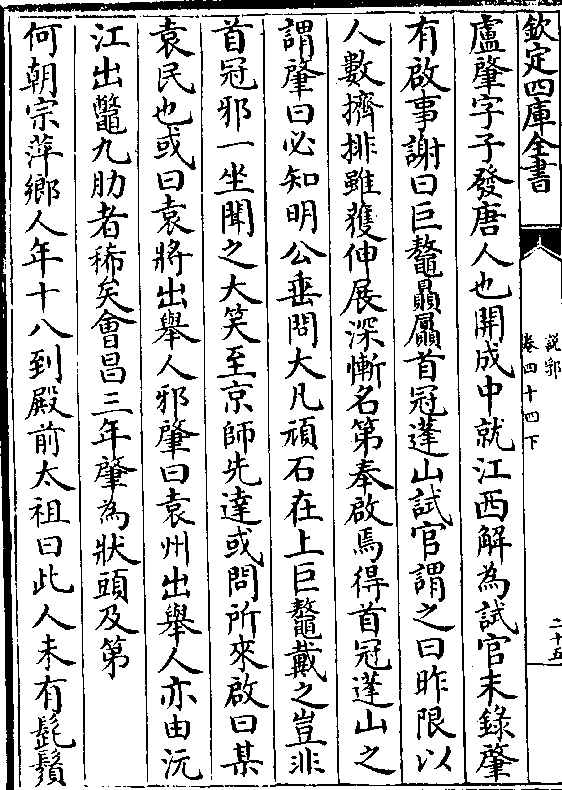 欽定四庫全書
說郛
卷四十四下
二十五
盧肇字子發唐人也開成中就江西解為試官末錄肇
有啟事謝曰巨鼇贔屭首冠蓬山試官謂之曰昨限以
人數擠排雖獲伸展深慚名第奉啟焉得首冠蓬山之
謂肇曰必知明公垂問大凡頑石在上巨鼇戴之豈非
首冠邪一坐聞之大笑至京師先達或問所來啟曰某
袁民也或曰袁將出舉人邪肇曰袁州出舉人亦由沅
江出鼈九肋者稀矣會昌三年肇為狀頭及第
何朝宗萍鄉人年十八到殿前太祖曰此人未有髭鬚